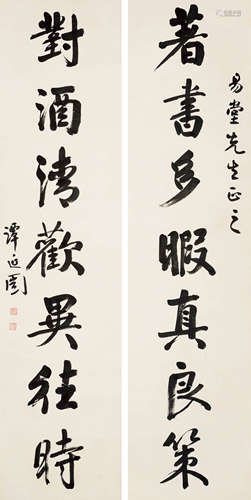 易堂先生正之
著書多暇真良策
對酒清歡異往時
譚延闓